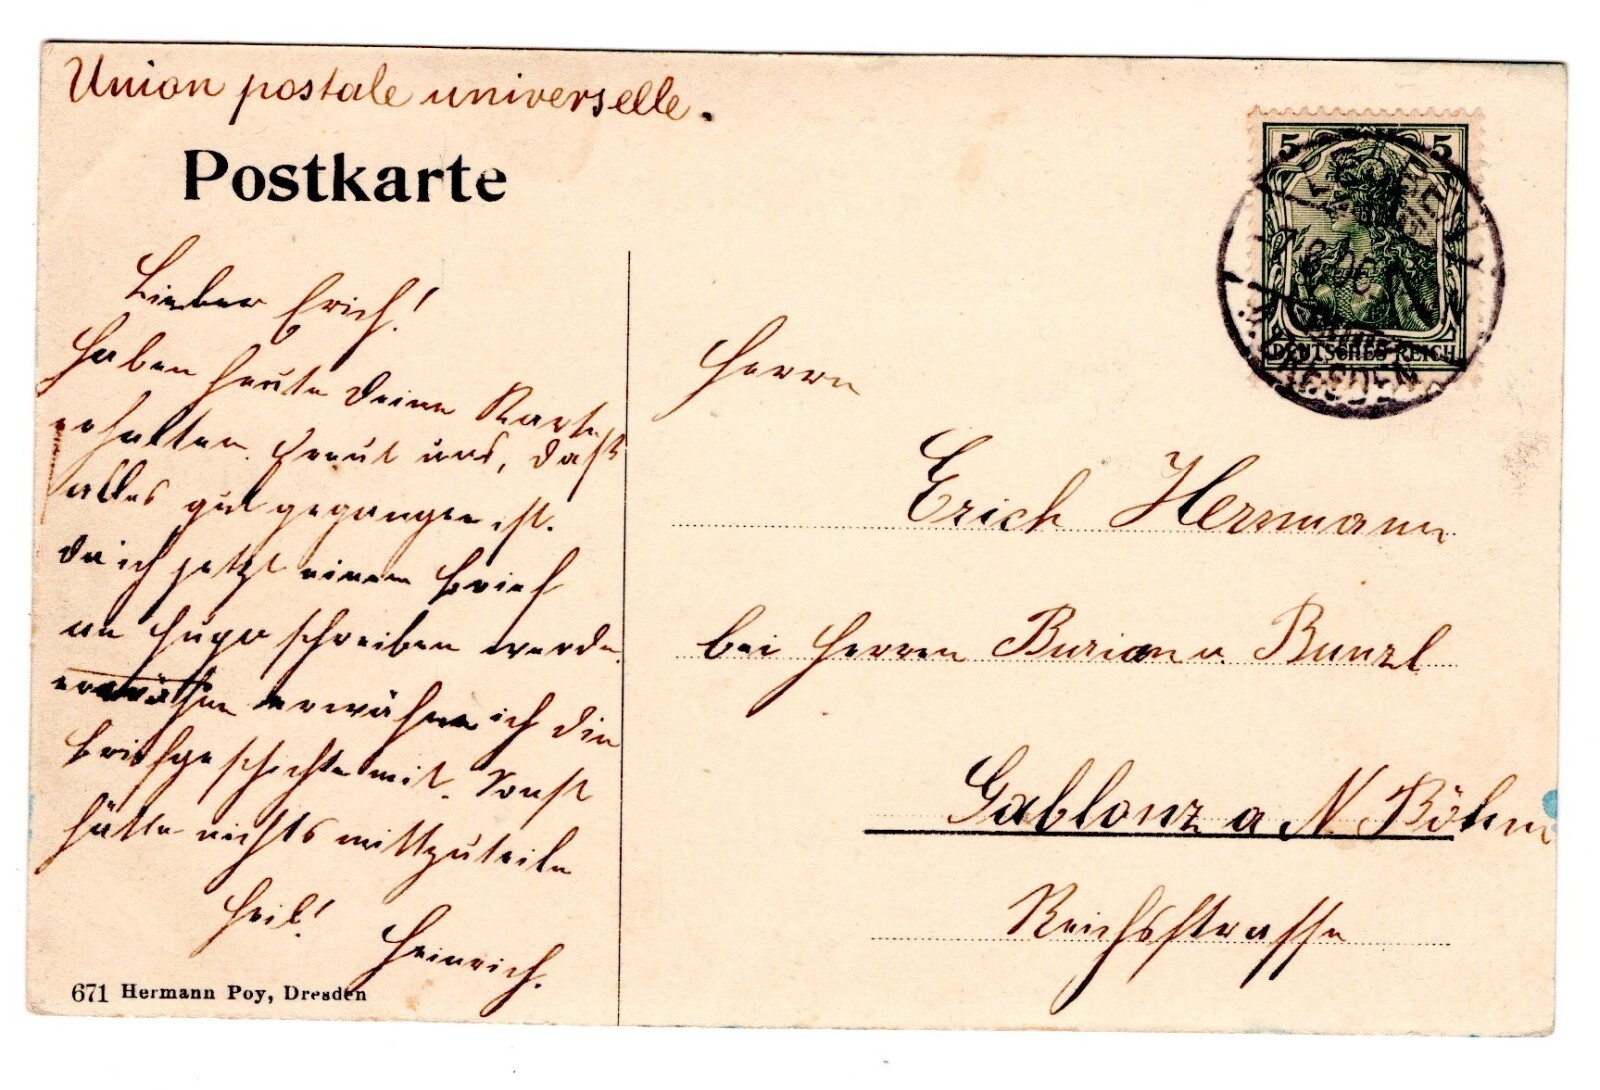 Union postale universelle.
Postkarte
Lieber Erich!
Haben heute deine Karte
erhalten. Freut uns, daß
alles gut gegangen ist.
Da ich jetzt einen Brief
an Hugo schreiben werde,
erwähne ich die
Briefgeschichte mit. Sonst
hätte nichts mittzuteilen
Heil!
Heinrich.
671 Hermann Poy, Dresden
5 5
DEUTSCHES REICH
DRESDEN
Herrn
Erich Herrmann
bei Herren Burian u. Bunzl
Gablonz a N. Böhm
Reichsstrasse